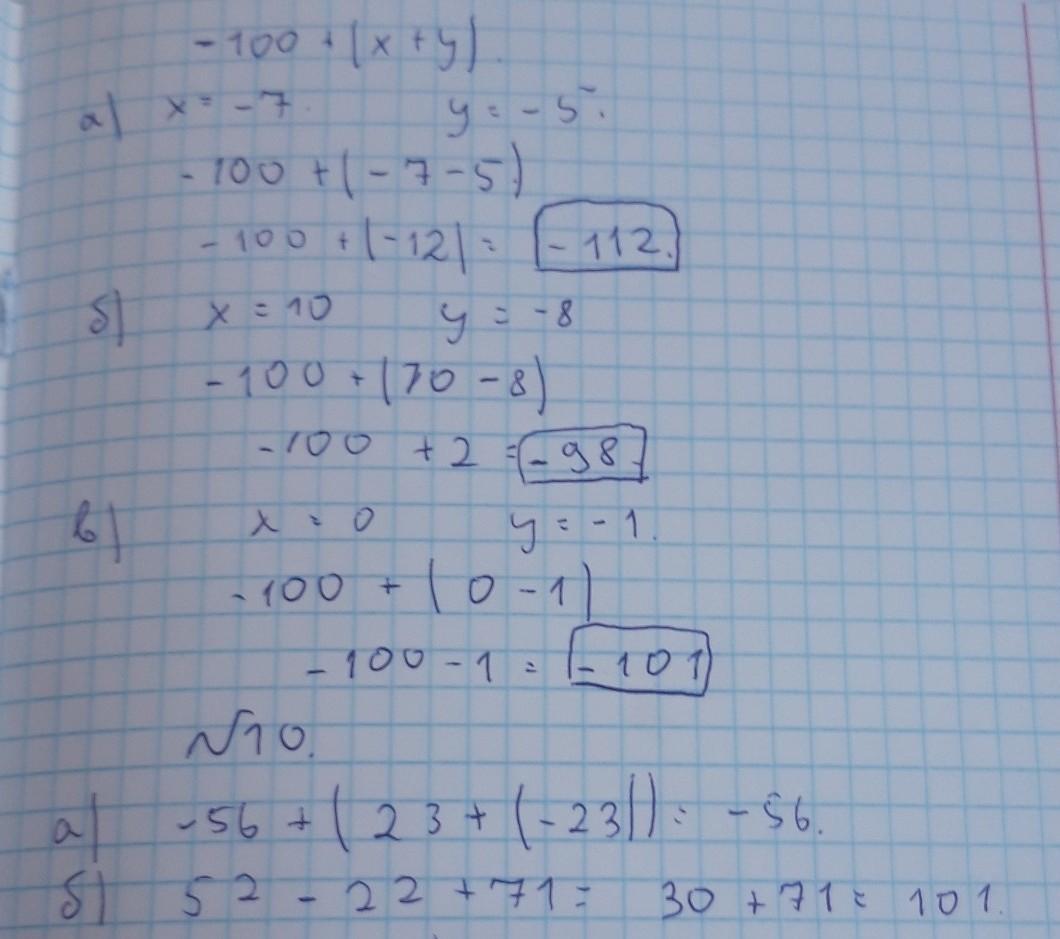 -100 + (x + y).
а) x = -7. y = -5.
-100 + (-7 - 5)
-100 + (-12) = -112.
б) x = 10 y = -8
-100 + (10 - 8)
-100 + 2 = -98.
в) x = 0 y = -1.
-100 + (0 - 1)
-100 - 1 = -101
№10.
а) -56 + (23 + (-23)) = -56.
б) 52 - 22 + 71 = 30 + 71 = 101.